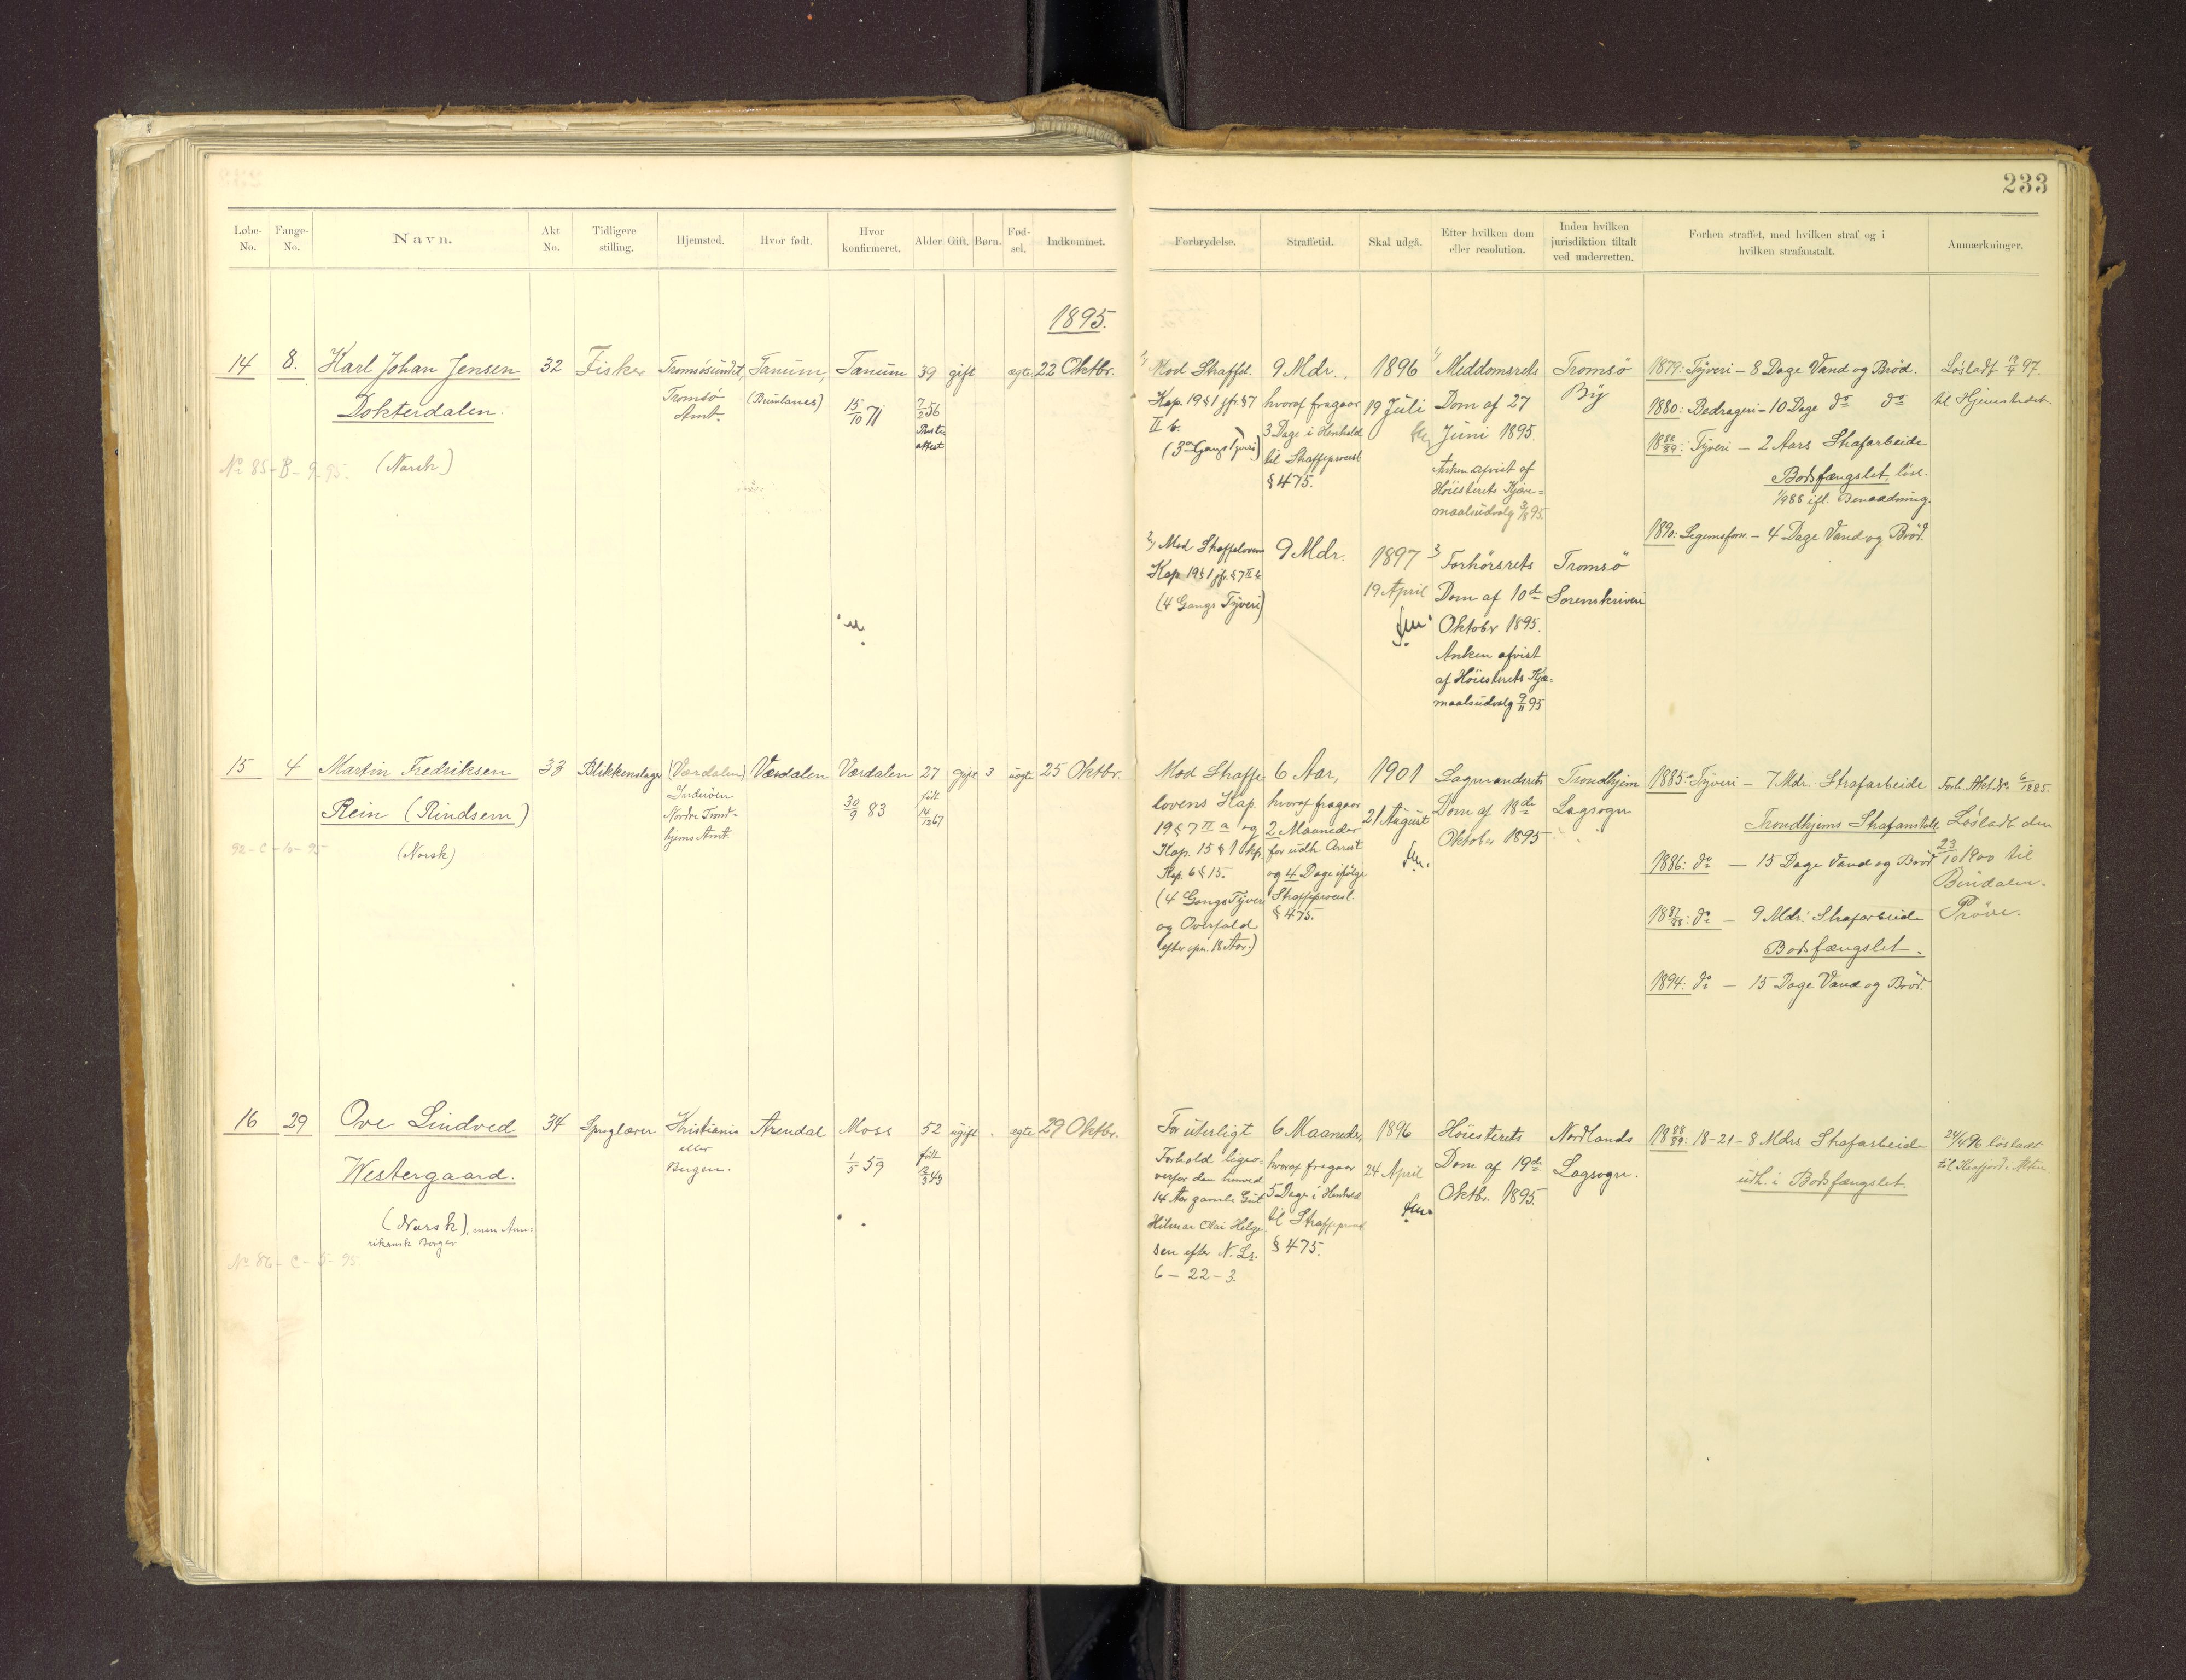 233
Løbe-No. Fange-No. Navn. Akt No. Tidligere stilling. Hjemsted. Hvor født. Hvor konfirmeret. Alder Gift. Børn. Fød-sel. Indkommet.
Forbrydelse. Straffetid. Skal udgå. Efter hvilken dom eller resolution. Inden hvilken jurisdiktion tiltalt ved underretten. Forhen straffet, med hvilken straf og i hvilken strafanstalt. Anmærkninger.
1895.
14 8. Karl Johan Jensen 32 Fisker Tromsøsundet, Tanum, Tanum 39 gift ægte 22 Oktbr.
Dokterdalen. Tromsö Amt. (Brunlanes) 15/10 71 7/2 56
Præste-
attest
No 85-B-9-95. (Norsk)
1/ Mod Straffel.
Kap. 19 § 1 jfr. § 7
II b.
(3die Gangs Tyveri)
9 Mdr.
hvoraf fragaar
3 Dage i Henhold
til Straffeprocesl.
§ 475.
1896
19 Juli
1/ Meddomsrets
Dom af 27
Juni 1895.
Anken afvist af
Höiesterets Kjære=
maalsudvalg 3/8 95.
Tromsö
By
1879: Tyveri - 8 Dage Vand og Bröd.
1880: Bedrageri - 10 Dage do do
1888/89: Tyveri - 2 Aars Strafarbeide
Bodsfængslet, løsl.
1/9 88 ifl. Benaadning.
1890: Legemsforn. - 4 Dage Vand og Bröd.
Løsladt 19/4 97.
til Hjemstedet.
2/ Mod Straffeloven
Kap 19 § 1 jfr. § 7 II b
(4 Gangs Tyveri)
9 Mdr.
1897
19 April
2/ Forhörsrets
Dom af 10de
Oktober 1895.
Anken afvist
af Höiesterets Kjæ=
maalsudvalg 9/11 95
Tromsö
Sorenskriveri
15 4 Martin Fredriksen 33 Blikkenslager (Værdalen) Værdalen Værdalen 27 gift 3 uægte 25 Oktbr.
Rein (Rindsem) Inderöen
Nordre Trond-
hjems Amt. 30/9 83 født
14/12 67
92-C-10-95 (Norsk)
Mod Straffe
lovens Kap.
19 § 7 II a og
Kap. 15 § 1 jfr.
Kap. 6 § 15.
(4 Gangs Tyveri
og Overfald
efter opn. 18 Aar.)
6 Aar,
hvoraf fragaar
2 Maaneder
for udh. Arrest
og 4 Dage ifølge
Straffeprocesl.
§ 475.
1901
21 August
Lagmandsrets
Dom af 18de
Oktober 1895
Trondhjem
Lagsogn
1885: Tyveri - 7 Mdr. Strafarbeide
Trondhjems Strafanstalt
1886: do - 15 Dage Vand og Bröd
1887/88: do - 9 Mdr. Strafarbeide
Bodsfængslet.
1894: do - 15 Dage Vand og Bröd.
Forh. Akt No 6/1885.
Løsladt den
23/10 1900 til
Bindalen.
Prøve.
16 29 Ove Lindved 34 Sproglærer Kristiania Arendal Moss 52 ugift . ægte 29 Oktbr.
Westergaard. eller
Bergen. 1/5 59 født
2/3 43
(Norsk), men Ame=
rikansk Borger
No 86-C-5-95.
For uterligt
Forhold ligeo=
verfor den henved
14 Aar gamle Gut
Hilmar Olai Helge
sen efter N. L's.
6 - 22 - 3.
6 Maaneder,
hvoraf fragaar
5 Dage i Henhold
til Straffeprocesl
§ 475.
1896
24 April
Höiesterets
Dom af 19de
Oktbr. 1895.
Nordlands
Lagsogn.
1888/89: 18-21 - 8 Mdrs Strafarbeide
udh. i Bodsfængslet.
24/4 96 løsladt
til Kaafjord i Alten